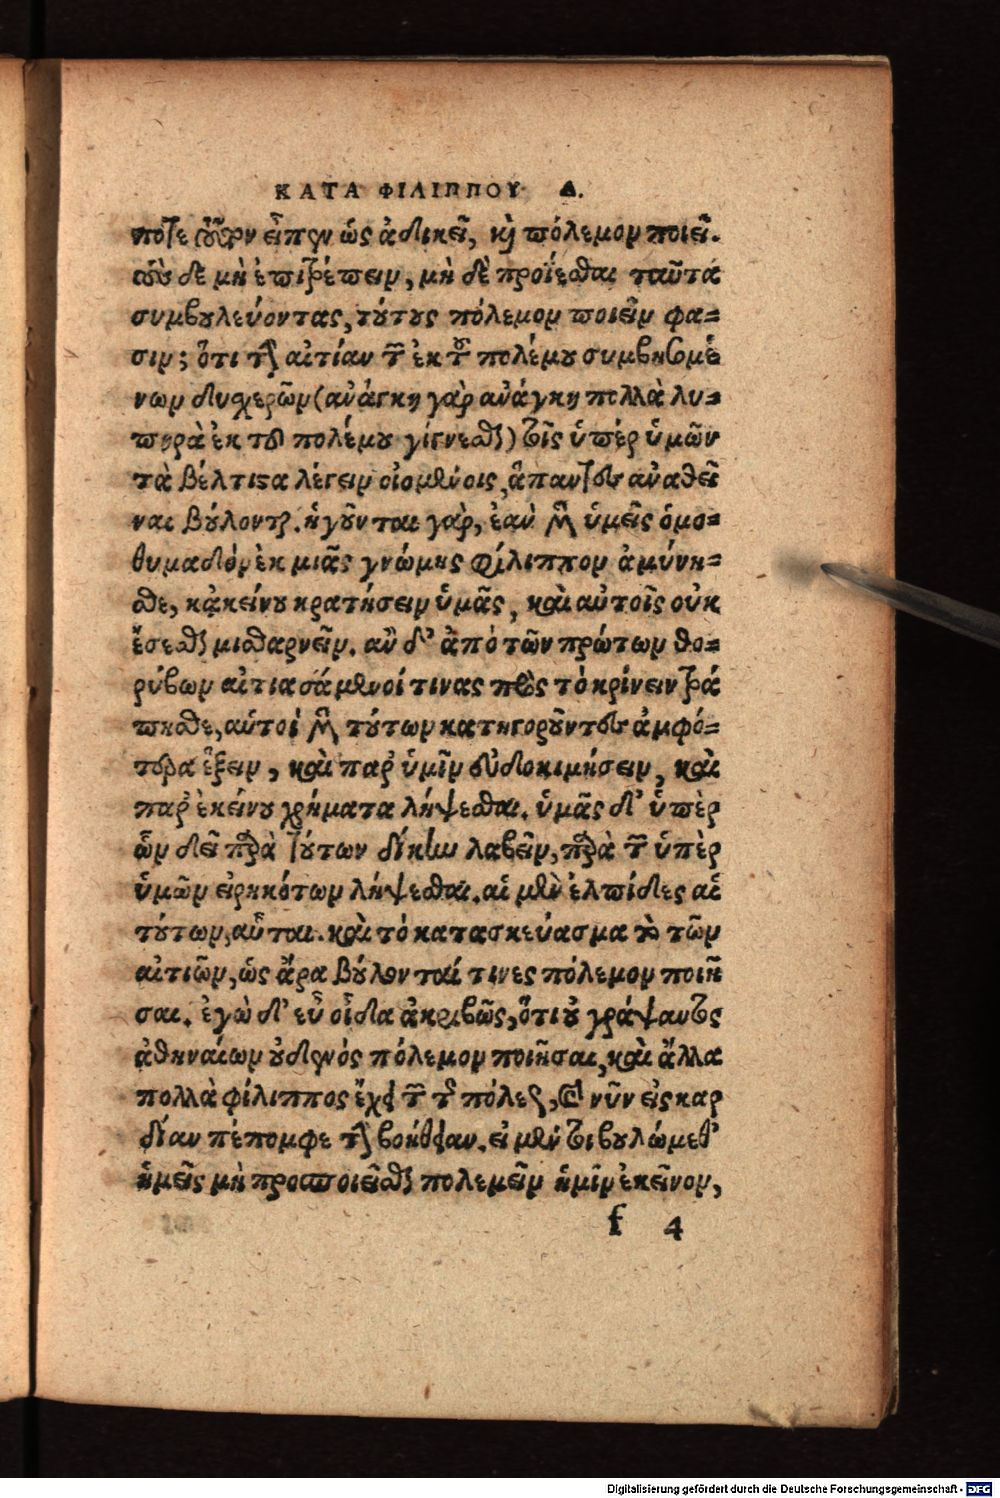 ΚΑΤΑ ΦΙΛΙΠΠΟΥ Δ.
ποτε εἶπεν ὡς ἀδικεῖ, καὶ πόλεμον ποιεῖ.
τοὺς δὲ μὴ ἐπιτρέπειν, μὴ δὲ προΐεσθαι ταῦτα
συμβουλεύοντας, τούτους πόλεμον ποιεῖν φα=
σιν; ὅτι τὴν αἰτίαν τῶν ἐκ τοῦ πολέμου συμβησομέ
νων δυσχερῶν (ἀνάγκη γὰρ ἀνάγκη πολλὰ λυ=
πηρὰ ἐκ τοῦ πολέμου γίγνεσθαι) τοῖς ὑπὲρ ὑμῶν
τὰ βέλτιστα λέγειν οἰομένοις, ἅπαντες ἀναθεῖ
ναι βούλονται. ἡγοῦνται γὰρ, ἐὰν μὲν ὑμεῖς ὁμο=
θυμαδὸν ἐκ μιᾶς γνώμης Φίλιππον ἀμύνη=
σθε, κἀκείνου κρατήσειν ὑμᾶς, καὶ αὐτοῖς οὐκ
ἔσεσθαι μισθαρνεῖν. ἂν δ' ἀπὸ τῶν πρώτων θο=
ρύβων αἰτιασάμενοί τινας πρὸς τὸ κρίνειν τρά
πησθε, αὐτοὶ μὲν τούτων κατηγοροῦντες ἀμφό=
τερα ἕξειν, καὶ παρ' ὑμῖν εὐδοκιμήσειν, καὶ
παρ' ἐκείνου χρήματα λήψεσθαι. ὑμᾶς δ' ὑπὲρ
ὧν δεῖ παρὰ τούτων δίκην λαβεῖν, παρὰ τῶν ὑπὲρ
ὑμῶν εἰρηκότων λήψεσθαι. αἱ μὲν ἐλπίδες αἱ
τούτων, αὗται. καὶ τὸ κατασκεύασμα τὸ τῶν
αἰτιῶν, ὡς ἄρα βούλονταί τινες πόλεμον ποιῆ
σαι. ἐγὼ δ' εὖ οἶδα ἀκριβῶς, ὅτι οὐ γράψαντος
ἀθηναίων οὐδενός πόλεμον ποιῆσαι, καὶ ἄλλα
πολλὰ φίλιππος ἔχει τῶν τῆς πόλεως, καὶ νῦν εἰς καρ
δίαν πέπομφε τὴν βοήθειαν. εἰ μέντοι βουλώμεθ'
ἡμεῖς μὴ προσποιεῖσθαι πολεμεῖν ἡμῖν ἐκεῖνον,
f 4
Digitalisierung gefördert durch die Deutsche Forschungsgemeinschaft - DFG